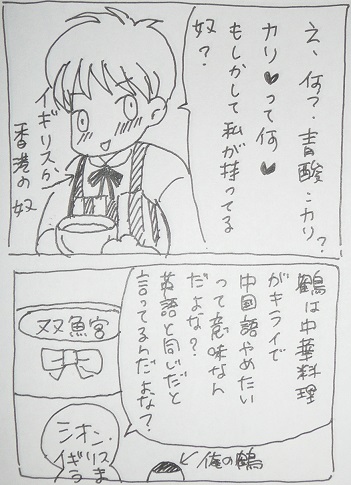 え、何っ・青酸・カリ?
カリ♥って何♥
もしかして私が持ってる
奴?
イギリスか
香港の奴
鶴は中華料理
がキライで
中国語やめたい
って意味なん
だよな?
英語と同じだと
言ってるんだよな?
双魚宮
シオン・
イギリスま
う
←俺の鶴